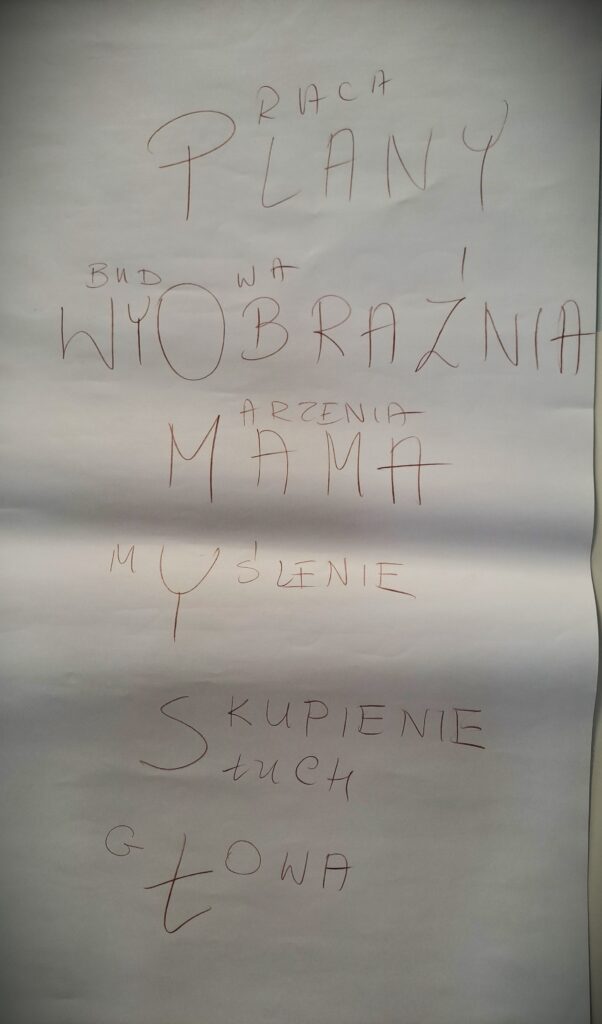 RACA
PLANY
BUD WA
WYOBRAŹNIA
ARZENIA
MAMA
MYŚLENIE
SKUPIENIE
ŁUCH
GŁOWA